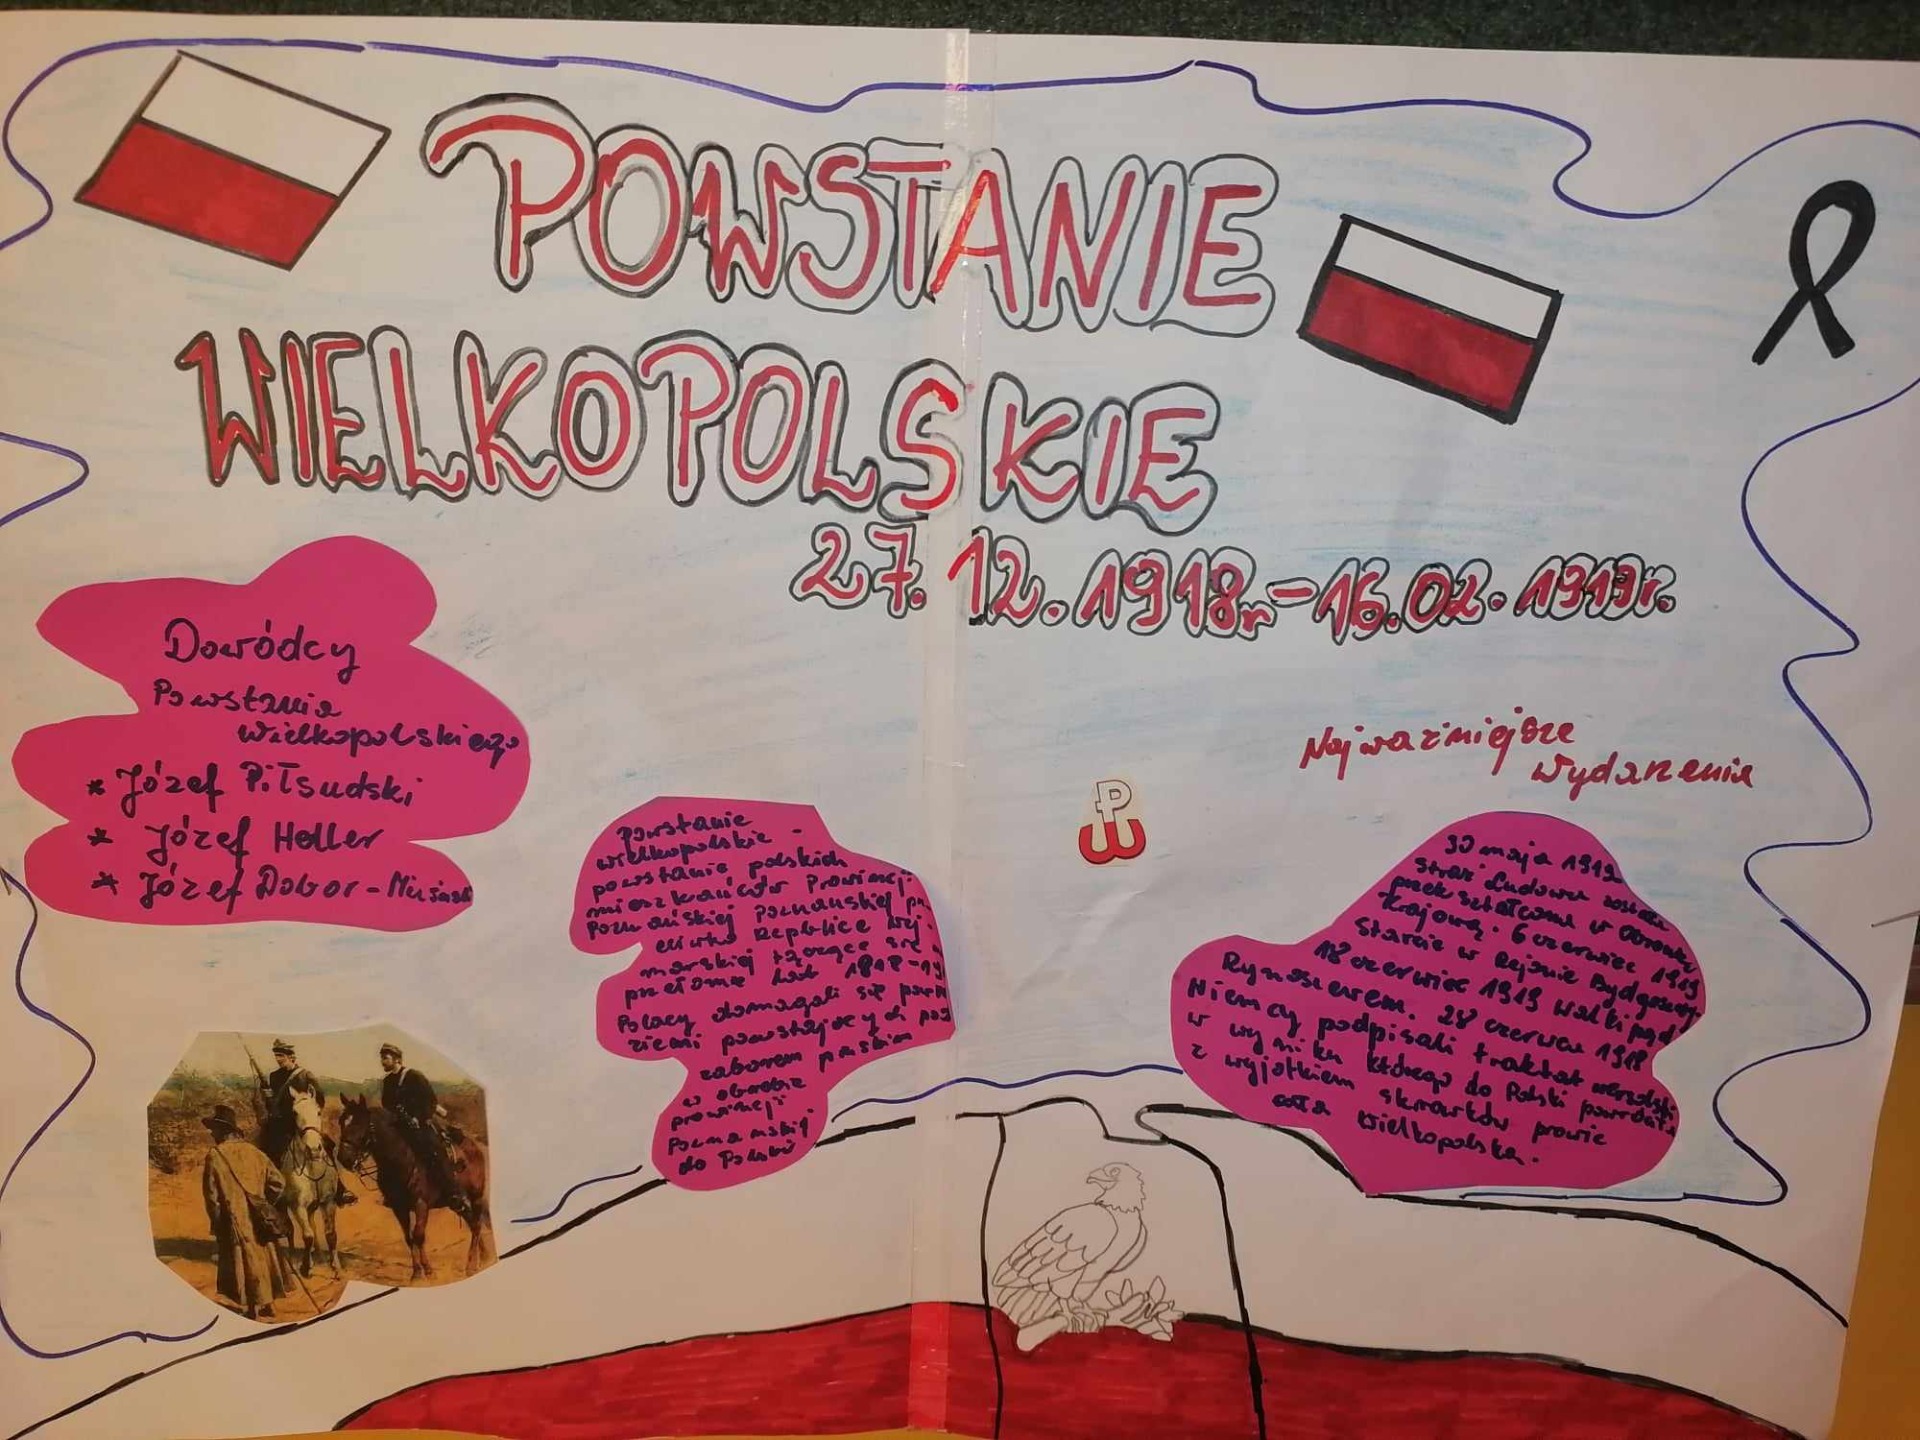 POWSTANIE
WIELKOPOLSKIE
27.12.1918r-16.02.1919r.
Dowódcy
Powstania
Wielkopolskiego
* Józef Piłsudski
* Józef Haller
* Józef Dobor-Muśnicki
Powstanie
wielkopolskie -
powstanie polskich
mieszkańców Prowincji
Poznańskiej
Republice
marskiej toczące się
przełomie lat 1918-19
Polacy domagali się
ziemi powstających pod
zaborem pruskim
w obrębie
prowincji
Poznańskiej
do Polski
P
W
Najważniejsze
Wydarzenia
30 maja 1919
Straż Ludowa została
przekształcona w Obronę
Krajową. 6 czerwiec 1919
Starcie w Rejonie Bydgoszczy
18 czerwiec 1919 walki pod
Rynarzewem. 28 czerwca 1918
Niemcy podpisali traktat wersalski
w wyniku którego do Polski powróciła
z wyjątkiem skrawków prawie
cała Wielkopolska.